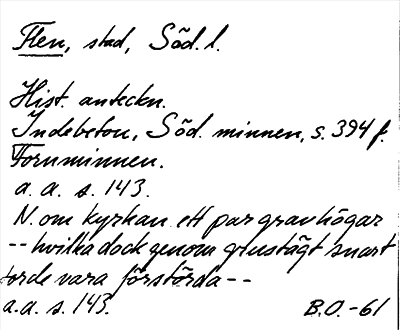 Flen, stad, Söd. l.
Hist. anteckn.
Indebetou, Söd. minnen, s. 394 f.
Fornminnen.
a. a. s. 143.
N. om kyrkan ett par gravhögar
-- hvilka dock genom grustägt snart
torde vara förstörda --
a.a. s. 143. B.O. -61